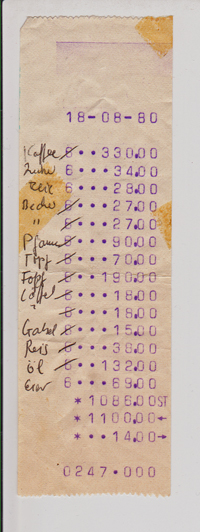 18-08-80
Kaffee 6··330.00
6···34.00
Reis 6···28.00
Becher 6···27.00
" 6···27.00
Pfann 6···90.00
Topf 6···70.00
Topf 6··190.00
Löffel 6···18.00
" 6···18.00
Gabel 6···15.00
Reis 6···38.00
öl 6··132.00
Eier 6···69.00
*1086.00ST
*1100.00←
*··14.00→
0247·000